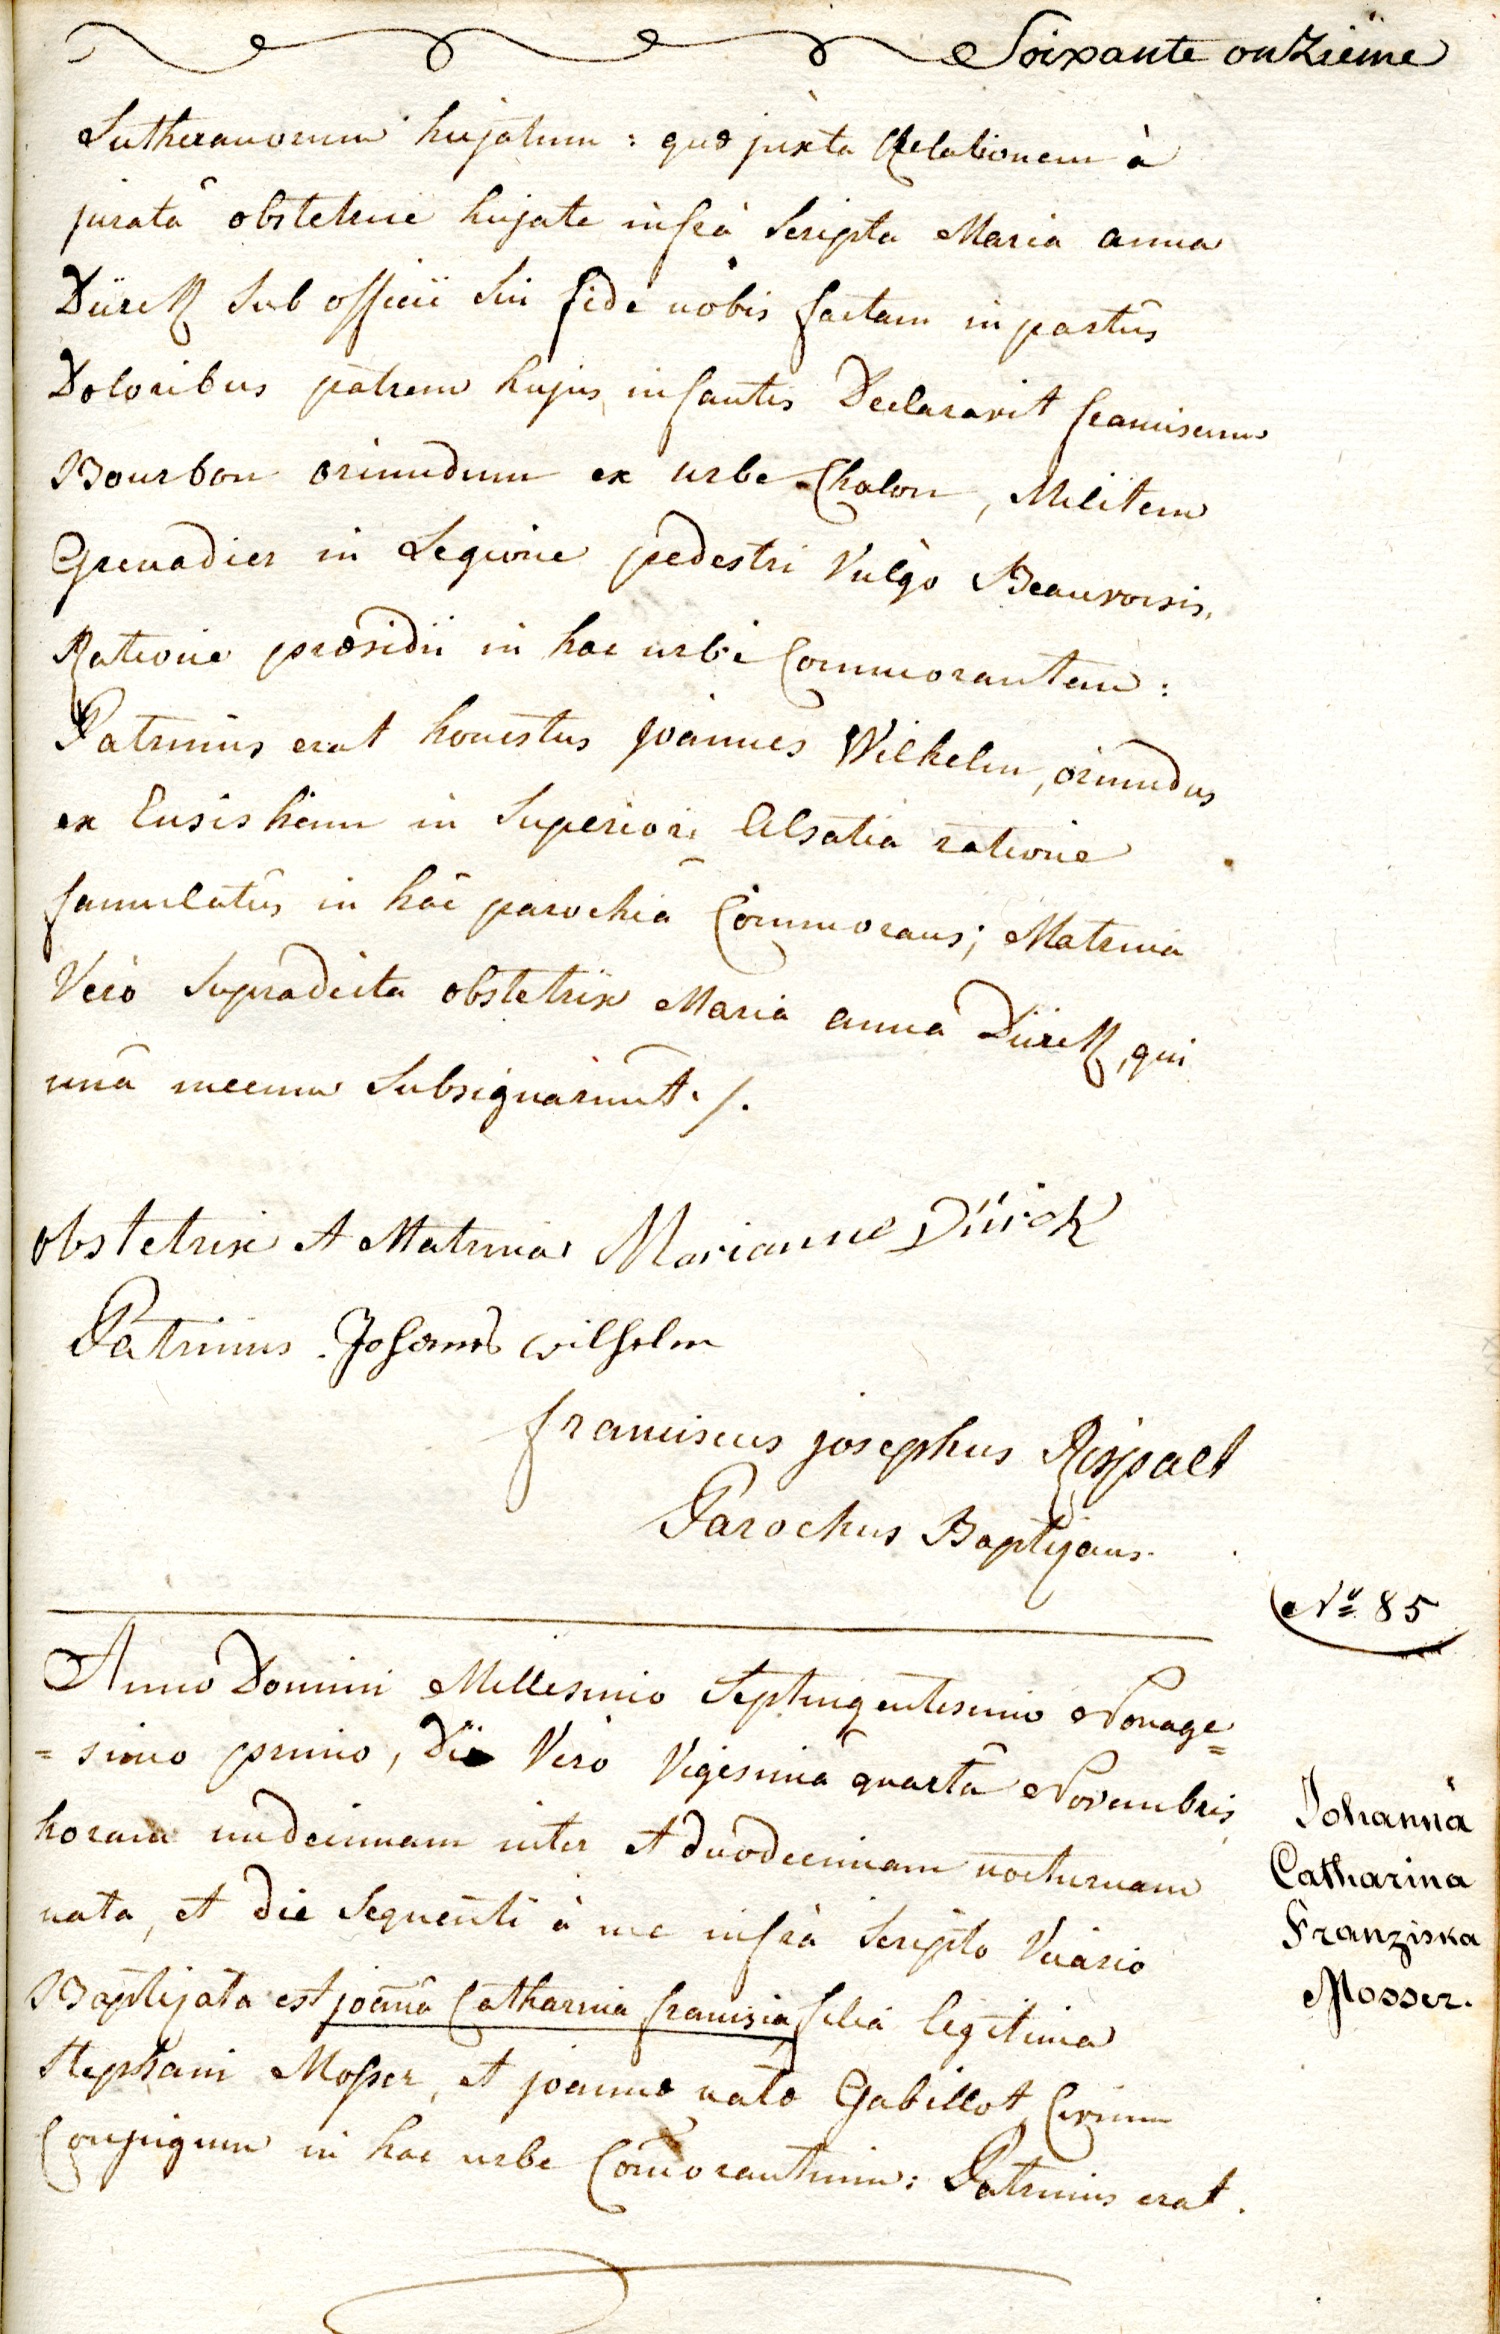 Soixante onzième
Lutheranorum hujatum : quæ juxta Relationem à
juratâ obstetrice hujate infrà Scripta Maria anna
Dürck Sub officii Sui fide nobis factam in partûs
Doloribus patrem hujus infantis Declaravit franciscum
Bourbon oriundum ex urbe Chalon, Militem
Grenadier in Legione pedestri Vulgò Beauvoisis,
Ratione præsidii in hac urbe Commorantem :
Patrinus erat honestus joannes Wilhelm, oriundus
ex Ensisheim in Superiori Alsatia ratione
famulatûs in hâc parochiâ Commorans; Matrina
Verò Supradicta obstetrix Maria anna Dürck, qui
unâ mecum Subsignarunt. /.
obstetrix et Matrina Marianne Dürck
Patrinus Johannes wilhelm
franciscus josephus Rispalt
Parochus Baptizans.
№ 85
Anno Domini Millesimo Septingentesimo Nonage=
=simo primo, Die Verò Vigesimâ quartâ Novembris
horam undecimam inter et duodecimam nocturnam
nata, et die Sequenti à me infrà Scripto Vicario
Baptizata est joanna Catharina francisia, filia legitima
Stephani Mosser, et joannæ natæ Gabillot Civium
Conjugum in hac urbe Com̄orantium: Patrinus erat.
Johanna
Catharina
Franziska
Mosser.